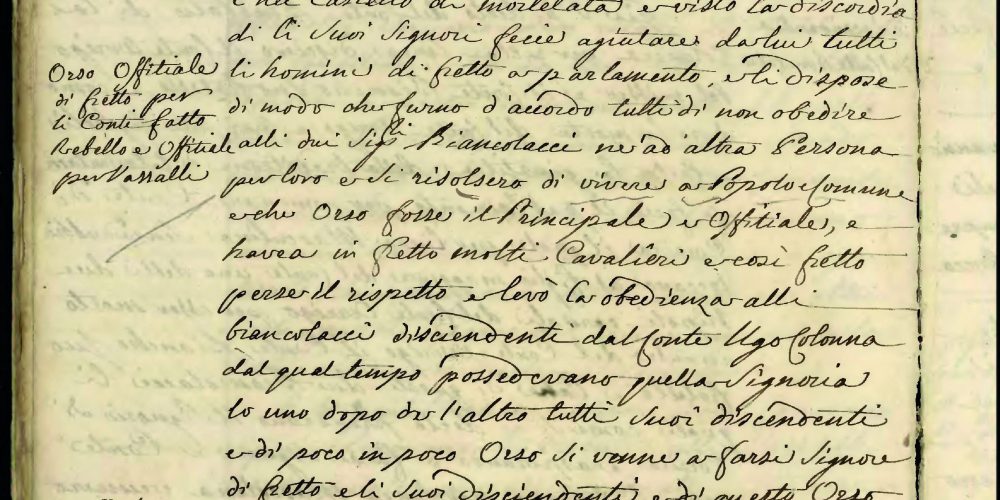 nel Castello di Mortelata e visto la discordia
di li Suoi Signori fecie agiutare da lui tutti
li homini di fretto a parlamento, e li dispose
di modo che furno d'accordo tutti di non obedire
alli dui Sig.li Biancolacci ne ad altra Persona
per loro e Si risolsero di vivere a Popolo e Comune
e che Orso fosse il Principale e Offitiale, e
havea in fretto molti Cavalieri e così fretto
perse il rispetto e levò la obedienza alli
biancolacci disciendenti dal Conte Ugo Colonna
dal qual tempo possedevano quella Signoria
lo uno dopo de l'altro tutti Suoi discendenti
e di poco in poco Orso Si venne a farsi Signore
di fretto e li Suoi disciendenti e di questo Orso
Orso Offitiale
di fretto per
li Conti fatto
Rebello e Offitiale
per Vassalli